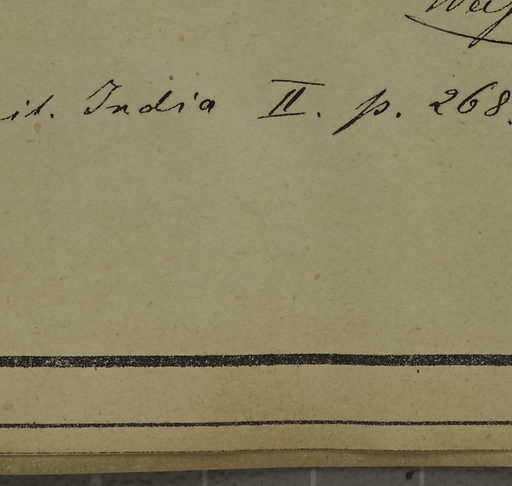 it. India II. p. 268.